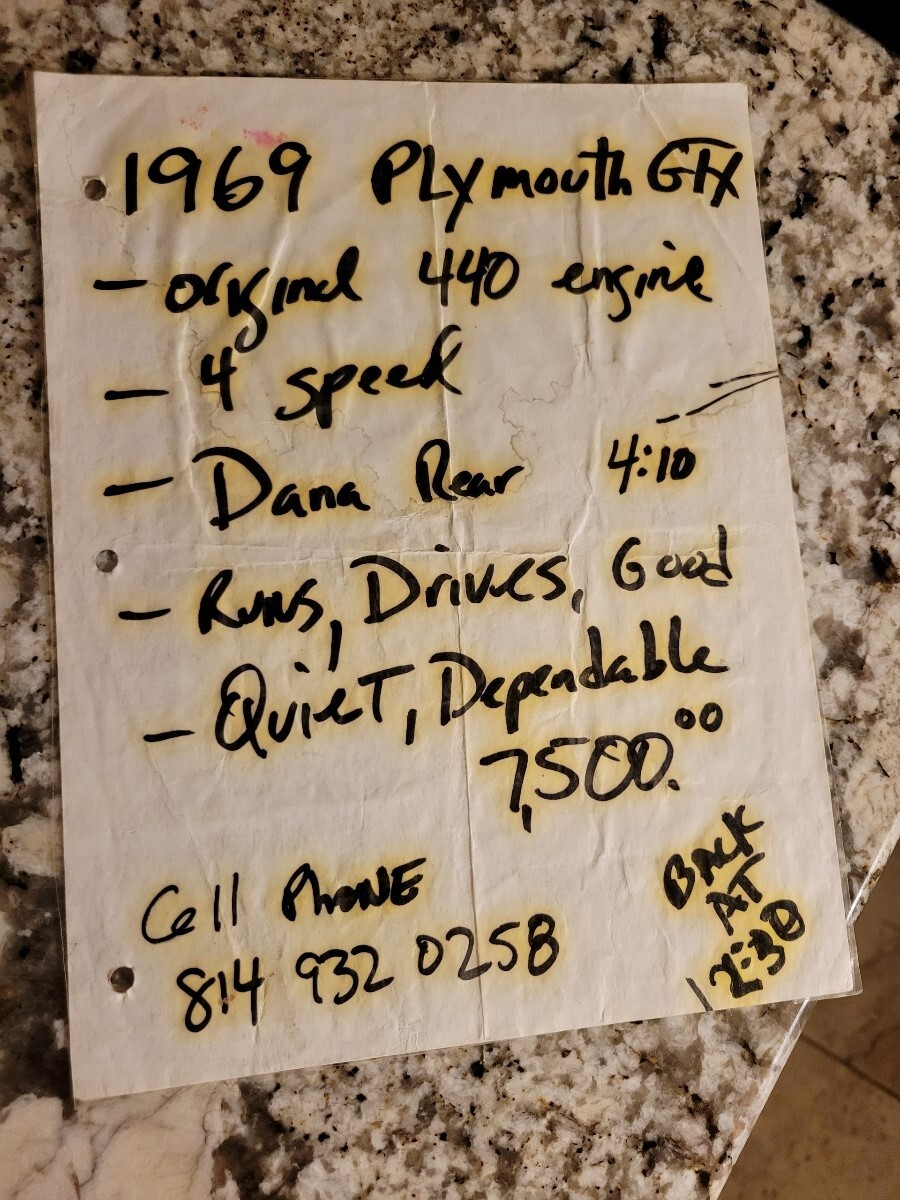 1969 Plymouth GTX
- original 440 engine
- 4 speed
- Dana Rear 4:10
- Runs, Drives, Good
- Quiet, Dependable
7,500.00
Cell Phone
814 932 0258
BACK
AT
2:30